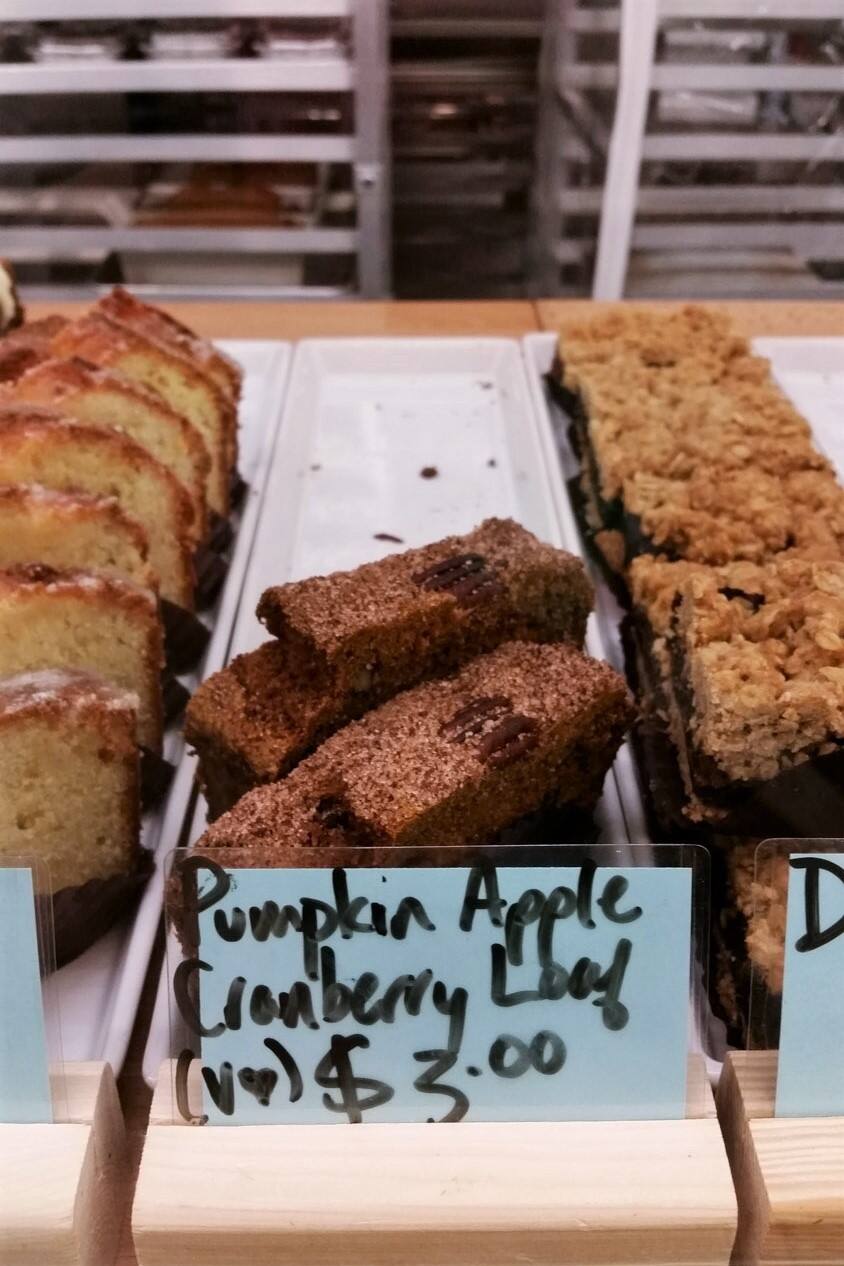 Pumpkin Apple
Cranberry Loaf
(v♥) $3.00
D